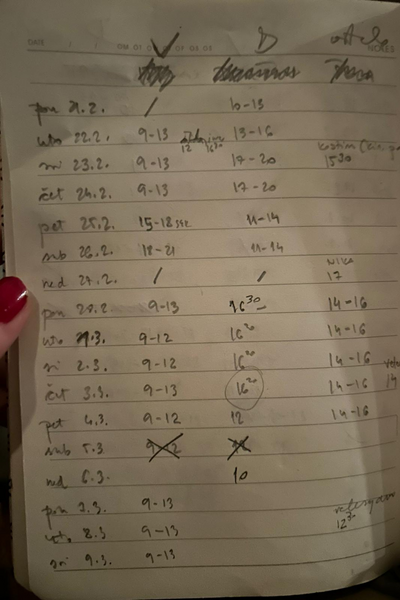 DATE
NOTES
V D
pon 21.2. / 10-13
uto 22.2. 9-13 13-16
12 16 30
sri 23.2. 9-13 17-20 15 30
čet 24.2. 9-13 17-20
pet 25.2. 15-18 11-14
sub 26.2. 18-21 11-14
ned 27.2. / / 17
pon 28.2. 9-13 16 30 14-16
uto 1.3. 9-12 16 30 14-16
sri 2.3. 9-12 16 30 14-16
čet 3.3. 9-13 16 30 14-16
pet 4.3. 9-12 12 14-16
sub 5.3 9-12
ned 6.3. 10
pon 7.3. 9-13
uto 8.3 9-13 12 30
sri 9.3. 9-13